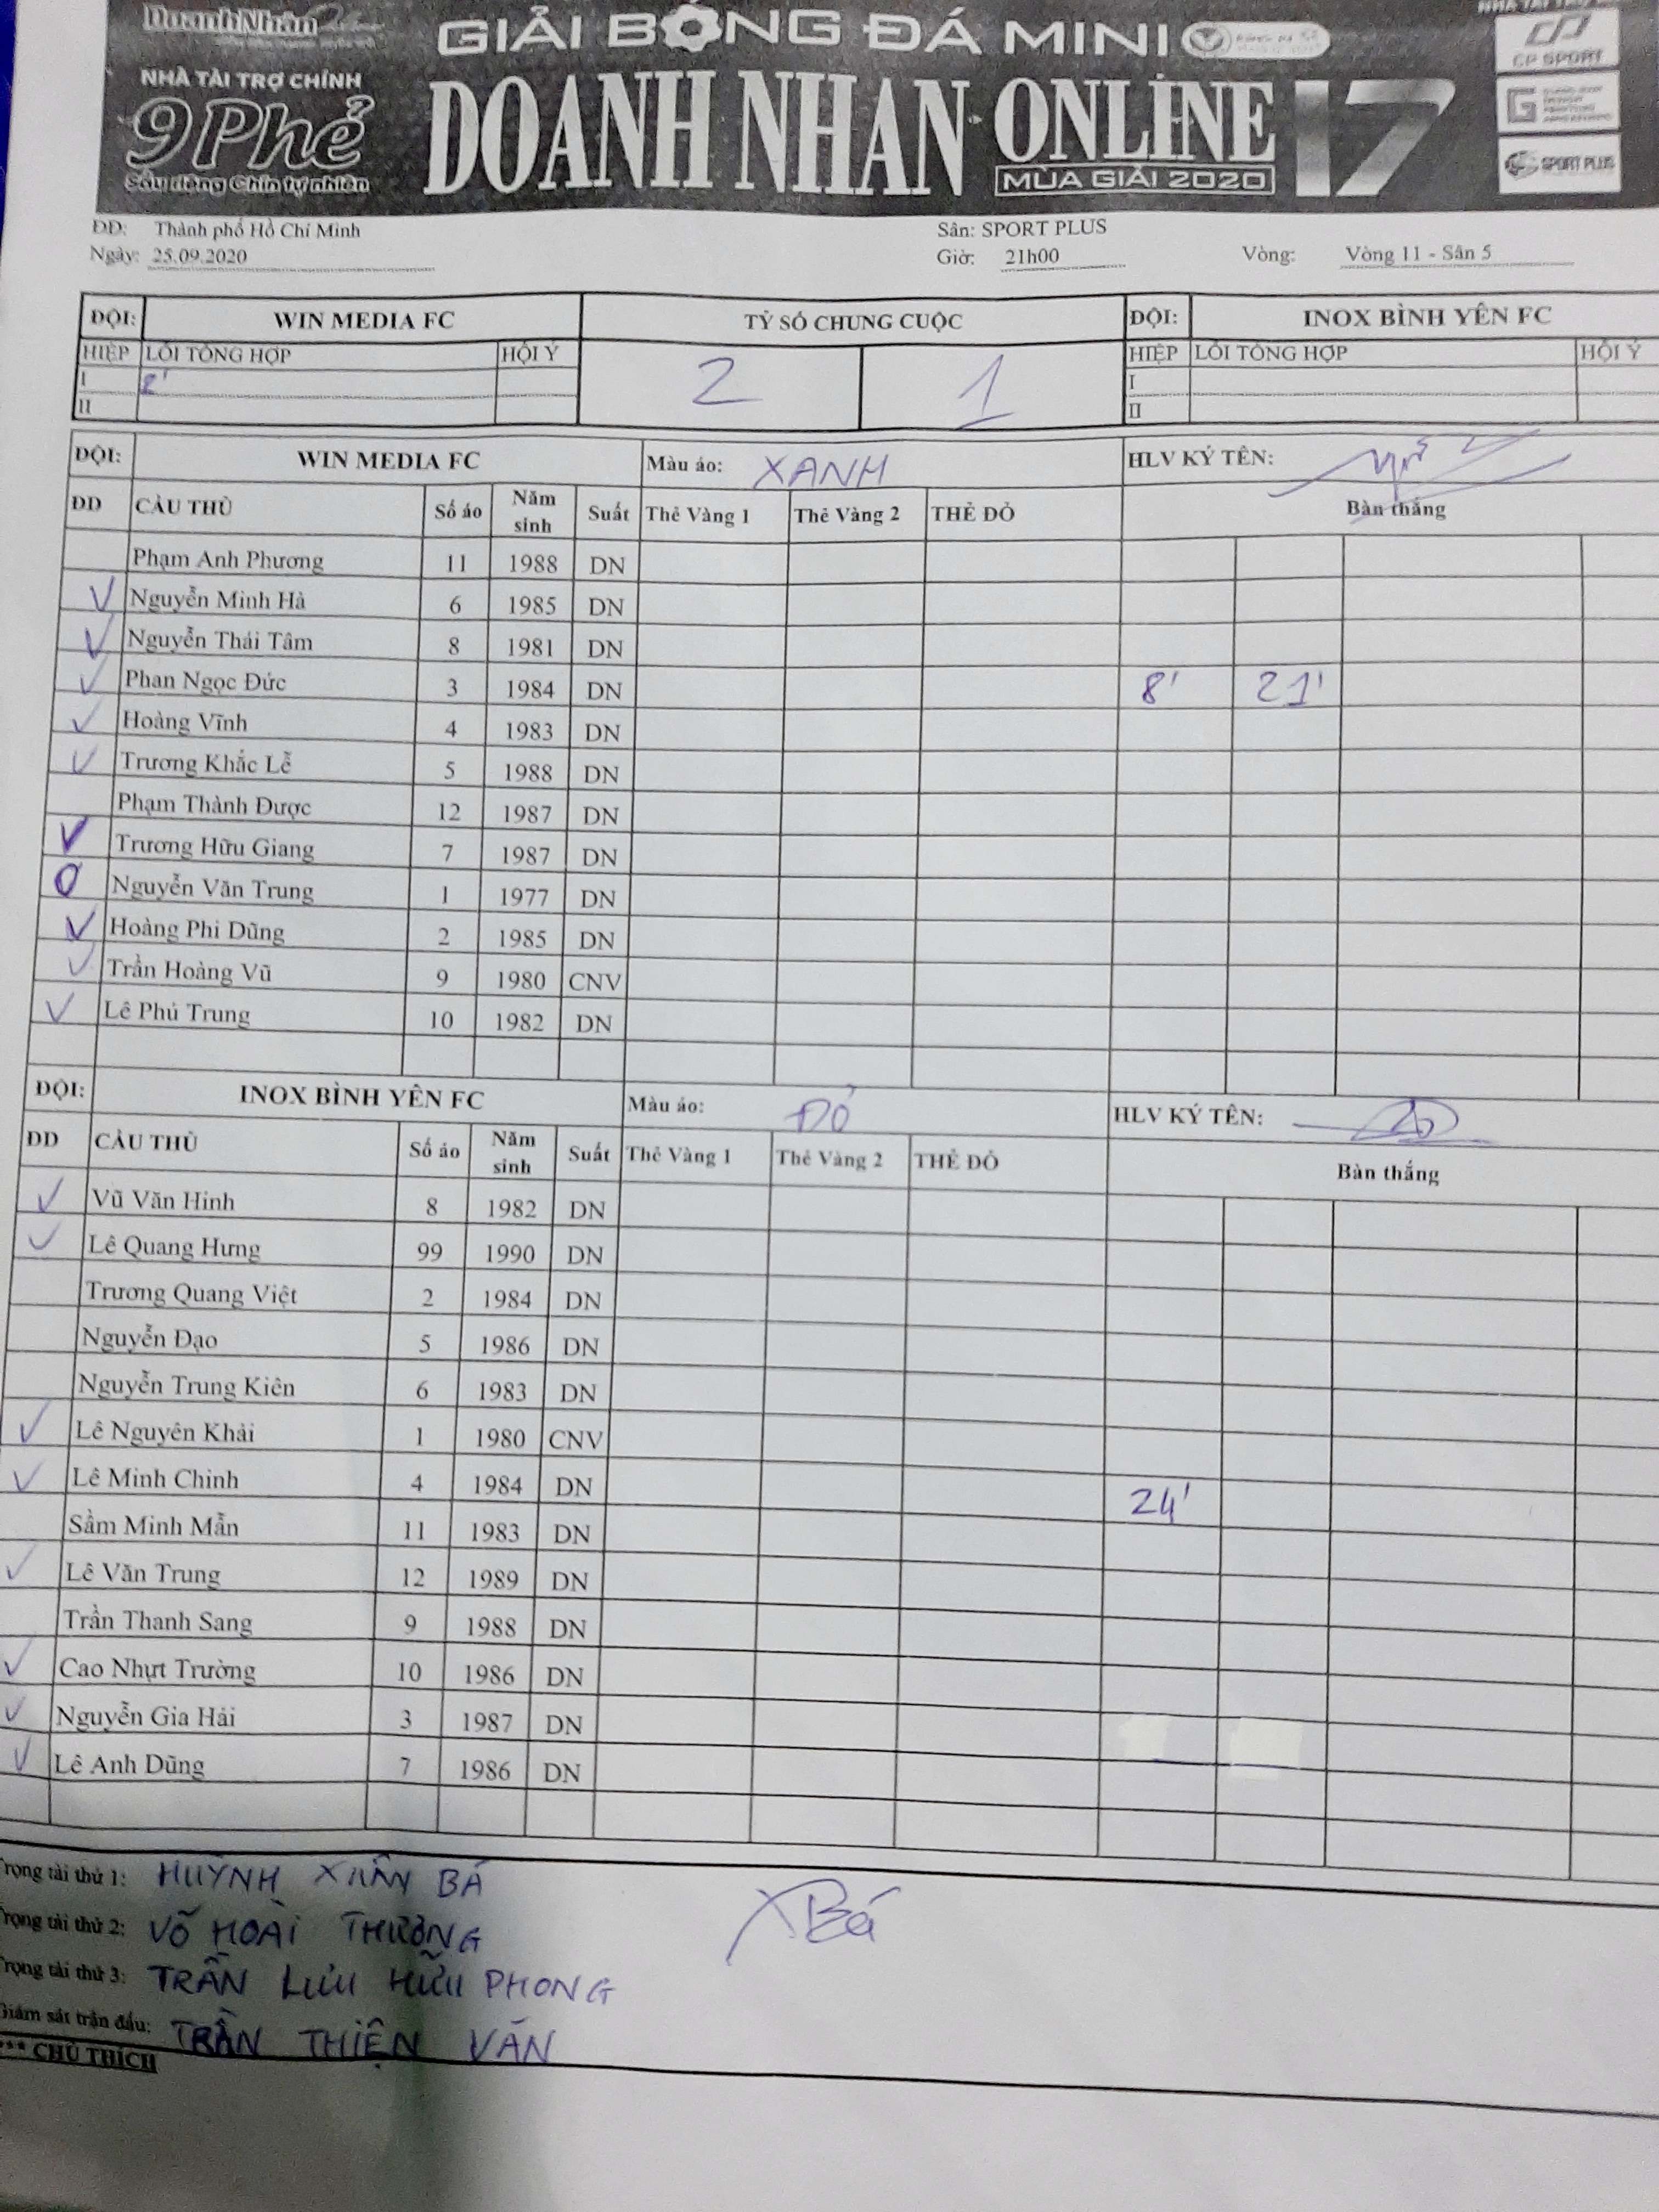 DoanhNhân
NHÀ TÀI TRỢ CHÍNH
9Phẻ
Sấu riêng Chín tự nhiên
GIẢI BÓNG ĐÁ MINI
DOANH NHAN ONLINE 17
MÙA GIẢI 2020
CP SPORT
SPORT PLUS
ĐĐ: Thành phố Hồ Chí Minh Sân: SPORT PLUS
Ngày: 25.09.2020 Giờ: 21h00 Vòng: Vòng 11 - Sân 5
ĐỘI: WIN MEDIA FC TỶ SỐ CHUNG CUỘC ĐỘI: INOX BÌNH YÊN FC
HIỆP LỖI TỔNG HỢP HỘI Ý 2 1 HIỆP LỖI TỔNG HỢP HỘI Ý
I 2' I
II II
ĐỘI: WIN MEDIA FC Màu áo: XANH HLV KÝ TÊN:
DD CẦU THỦ Số áo Năm sinh Suất Thẻ Vàng 1 Thẻ Vàng 2 THẺ ĐỎ Bàn thắng
Phạm Anh Phương 11 1988 DN
V Nguyễn Minh Hà 6 1985 DN
V Nguyễn Thái Tâm 8 1981 DN
V Phan Ngọc Đức 3 1984 DN 8' 21'
V Hoàng Vĩnh 4 1983 DN
V Trương Khắc Lễ 5 1988 DN
Phạm Thành Được 12 1987 DN
V Trương Hữu Giang 7 1987 DN
0 Nguyễn Văn Trung 1 1977 DN
V Hoàng Phi Dũng 2 1985 DN
V Trần Hoàng Vũ 9 1980 CNV
V Lê Phú Trung 10 1982 DN
ĐỘI: INOX BÌNH YÊN FC Màu áo: ĐỎ HLV KÝ TÊN:
DD CẦU THỦ Số áo Năm sinh Suất Thẻ Vàng 1 Thẻ Vàng 2 THẺ ĐỎ Bàn thắng
V Vũ Văn Hinh 8 1982 DN
V Lê Quang Hưng 99 1990 DN
Trương Quang Việt 2 1984 DN
Nguyễn Đạo 5 1986 DN
Nguyễn Trung Kiên 6 1983 DN
V Lê Nguyên Khải 1 1980 CNV
V Lê Minh Chinh 4 1984 DN 24'
Sầm Minh Mẫn 11 1983 DN
V Lê Văn Trung 12 1989 DN
Trần Thanh Sang 9 1988 DN
V Cao Nhựt Trường 10 1986 DN
V Nguyễn Gia Hải 3 1987 DN
V Lê Anh Dũng 7 1986 DN
Trọng tài thứ 1: HUỲNH XUÂN BÁ
XBá
Trọng tài thứ 2: VÕ HOÀI THƯƠNG
Trọng tài thứ 3: TRẦN LƯU HỮU PHONG
Giám sát trận đấu: TRẦN THIỆN VĂN
*** CHÚ THÍCH